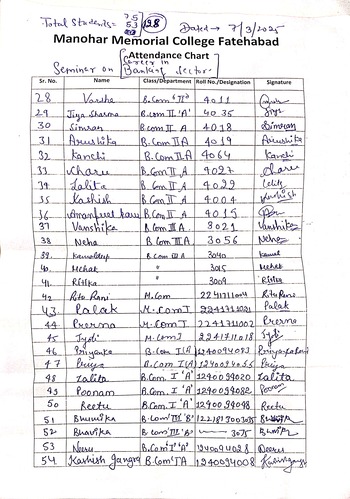 Total Students= 75
53
128
Dated → 7/3/2025
Manohar Memorial College Fatehabad
Attendance Chart
Seminar on [Career in Banking Sector.]
Sr. No. Name Class/Department Roll No./Designation Signature
28 Varsha B.Com "II" 4011
29 Jiya Sharma B.com II 'A' 4035 Jiya
30 Simran B.com II A 4018 Simran
31 Anushika B.Com II A 4019 Anushika
32 Kanchi B.Com II A 4064 Kanchi
33 Charu B.Com II A 4027 Charu
34 Lalita B.Com II A 4022 Lalita
35 Kashish B.Com II A 4004 Kashish
36 Amanpreet kaur B.Com II A 4015
37 Vanshika B.Com III A 3021 Vanshika
38 Neha B.Com III A 3056 Neha
39. Kamaldeep B.Com III A 3040 Kamal
40. Mehak " 3015 Mehak
41. Ritika " 3009 Ritika
42 Ritu Rani M.Com 2241711004 Ritu Rani
43. Palak M.Com I 2241711021 Palak
44 Prerna M.Com I 2241711002 Prerna
45 Jyoti M.Com I 2241711018 Jyoti
46 Priyanka B.Com I (A) 1240094093
47 Priya B.Com I (A) 1240094055 Priya
48 Lalita B.Com. I 'A' 1240094020 Lalita
49 Poonam B.Com. I 'A' 1240094082 Poonam
50 Reetu B.Com. I 'A' 1240094098 Reetu
51 Bhumika B.Com 'III' 'B'
52 Bhavika B.Com 'III' 'B' 3075 Bhavik
53 Neeru B.Com I 'A' 1240094028
54 Kashish Jangra B.Com I A 1240094008